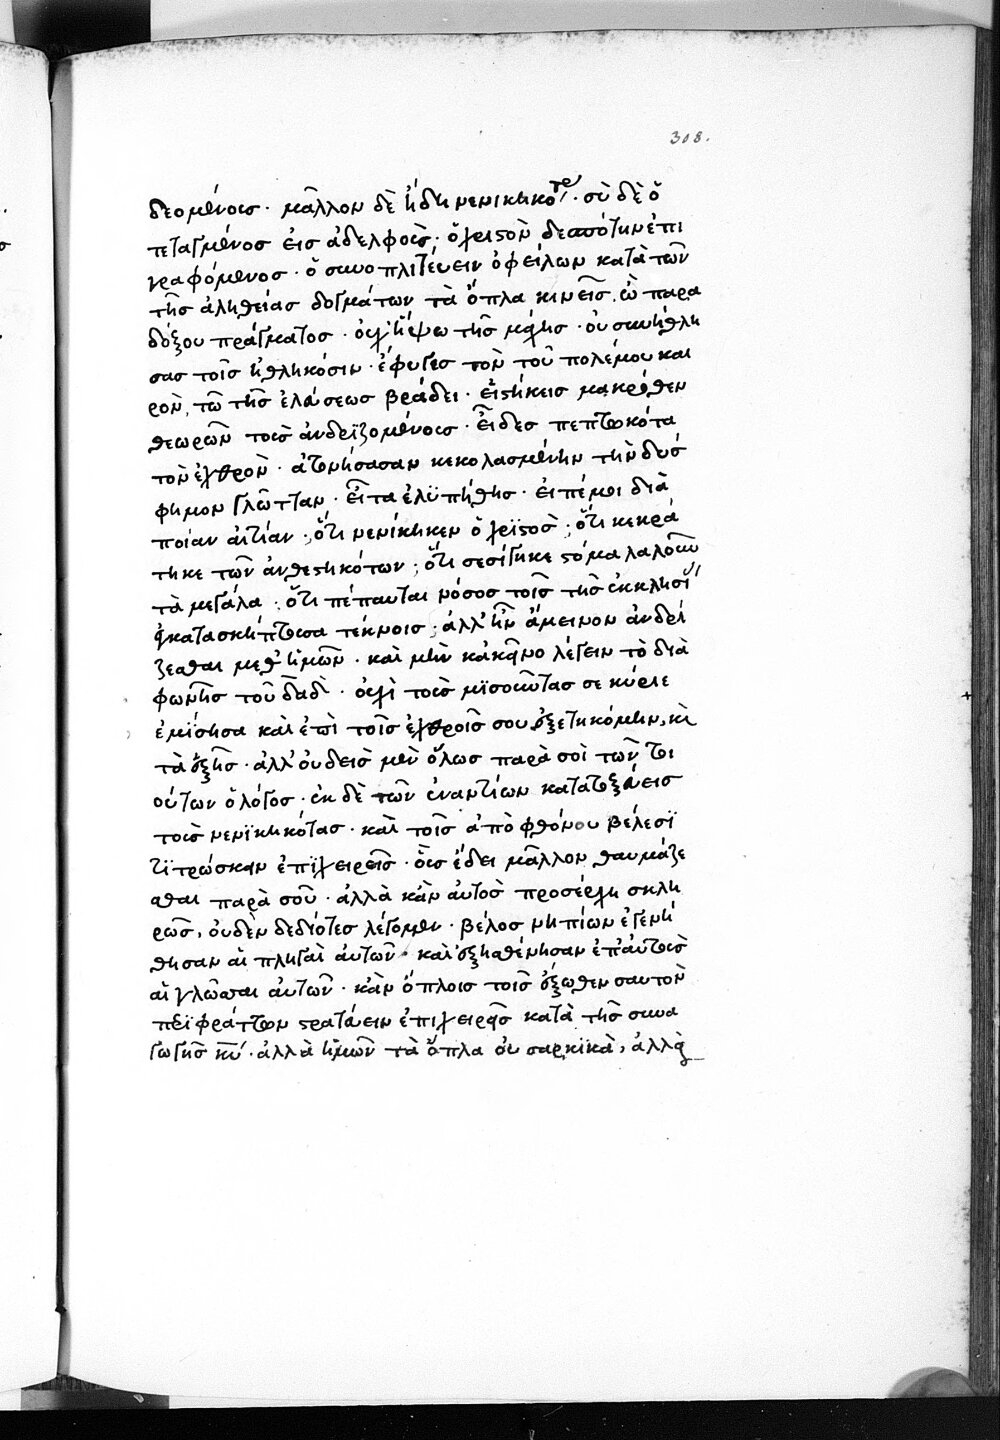 308.
δεομένοις · μᾶλλον δὲ ἤδη νενικηκότες · σὺ δὲ ὁ
τεταγμένος εἰς ἀδελφοὺς; ὁ χριστὸν δεσπότην ἐπι
γραφόμενος · ὁ συνοπλιτεύειν ὀφείλων κατὰ τῶν
τῆς ἀληθείας δογμάτων τὰ ὅπλα κινεῖς, ὢ παρα
δόξου πράγματος · οὐχ ἥψω τῆς μάχης · οὐ συνήθλη
σας τοῖς ἠθληκόσιν · ἔφυγες τὸν τοῦ πολέμου και
ρὸν, τῶ τῆς ἐλάσεως βράδει · εἱστήκεις μακρόθεν
θεωρῶν τοὺς ἀνδριζομένους · εἶδες πεπτωκότα
τὸν ἐχθρὸν · ἀτονήσασαν κεκολασμένην τὴν δυσ
φημον γλῶτταν · εἶτα ἐλϋπήθης · εἰπέ μοι διὰ
ποίαν αἰτίαν ; ὅτι νενίκηκεν ὁ χρϊστὸς ; ὅτι κεκρά
τηκε τῶν ἀνθεστηκότων ; ὅτι σεσίγηκε στόμα λαλοῦν
τὰ μεγάλα ; ὅτι πέπαυται νόσος τοῖς τῆς ἐκκλησί
ἐγκατασκήπτουσα τέκνοις ; ἀλλ' ἦν ἄμεινον ἀνδρί
ζεσθαι μεθ' ἡμῶν · καὶ μὴν κἀκεῖνο λέγειν τὸ διὰ
φωνῆς τοῦ δαδὶ · οὐχὶ τοὺς μϊσοῦντας σε κύριε
ἐμίσησα καὶ ἐπὶ τοῖς ἐχθροῖς σου ἐξετηκόμην, κὶ
τὰ ἑξῆς · ἀλλ' οὐδεὶς μὲν ὅλως παρὰ σοὶ τῶν τοι
ούτων ὁ λόγος · ἐκ δὲ τῶν ἐναντίων κατατοξεύεις
τοὺς νενϊκηκότας · καὶ τοῖς ἀπὸ φθόνου βέλεσϊ
τϊτρώσκειν ἐπϊχειρεῖς · οὓς ἔδει μᾶλλον θαυμάζε
σθαι παρὰ σοῦ · ἀλλὰ κἂν αὐτὸς προσέρχη σκλη
ρῶς, οὐδὲν δεδιότες λέγομεν · βέλος νηπίων ἐγενή
θησαν αἱ πληγαὶ αὐτῶν · καὶ ἐξησθένησαν ἐπ' αὐτοὺς
αἱ γλῶσσαι αὐτῶν · κἂν ὅπλοις τοῖς ἔξωθεν σαυτὸν
περϊφράττων στρατεύειν ἐπιχειρῆς κατὰ τῆς συνα
γωγῆς κυ · ἀλλὰ ἡμῶν τὰ ὅπλα οὐ σαρκϊκὰ, ἀλλὰ